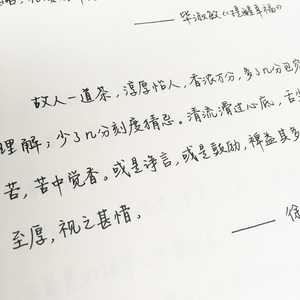 —— 毕淑敏《提醒幸福》
故人一道茶，淳厚怡人，香浓万分，多了几分包容
理解；少了几分刻度猜忌。清流滑过心底，舌尖
苦，苦中觉香。或是诤言，或是鼓励，裨益良多
至厚，视之甚惜。
—— 徐